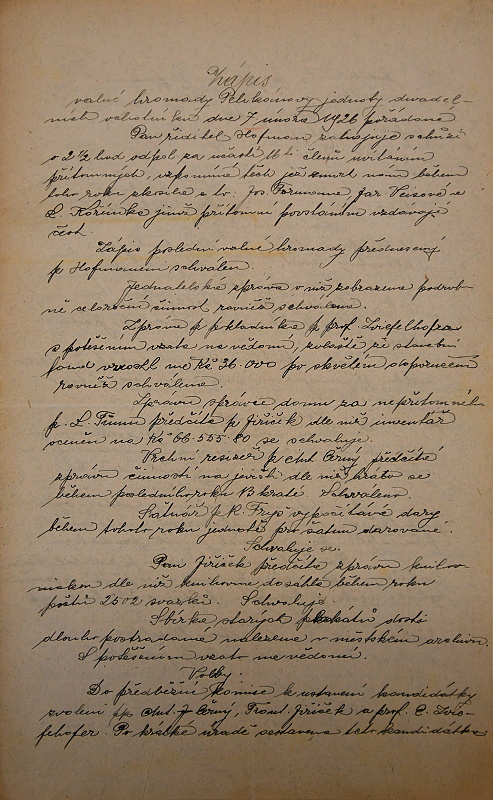 Zápis
valné hromady Pelikánovy jednoty divadel-
ních ochotníků dne 7 února 1926 pořádané
Pan ředitel Hofman zahajuje schůzi
o 2 1/2 hod odpol za účasti 16 ti členů uvítáním
přítomných, vzpomíná těch již smrt nám během
toho roku skosila a to: Jos. Formana Jar Veisové a
L. Kořínka jimž přítomní povstáním vzdávají
čest.
Zápis poslední valné hromady přednesený
p Hofmanem schválen.
Jednatelská zpráva v níž zobrazena podrob-
ně celoroční činnost rovněž schválena.
Zpráva p pokladníka p prof. Zviefelhofra
s potěšením vzata na vědomí, zvláště že stavební
fond vzrostl na Kč 36.000 po skvělém doporučení
rovněž schválena
Zprávu správce domu za nepřítomného
p. L. Tůmu předčítá p Jiříček dle níž inventář
oceněn na Kč 66.555.80 se schvaluje.
Vrchní režisér p Ant. Černý předčítá
zprávu činnosti na jevišti dle níž hráto se
během posledního roku 13 kráte. Schváleno.
Šatnář p R. Fryš vypočítává dary
během tohoto roku jednotě pro šatnu darované.
Schvaluje se.
Pan Jiříček předčítá zprávu knihov-
níkovu dle níž knihovna dosáhla během roku
počtu 2502 svazků. Schvaluje.
Sbírka starých plakátů dosti
dlouho postrádaná nalezena v městském archivu.
S potěšením vzato na vědomí.
Volby.
Do předběžné komise k ustavení kandidátky
zvoleni pp Ant. J Černý, Frant. Jiříček a prof. C. Zvie-
felhofer. Po krátké úradě sestavena tato kandidátka